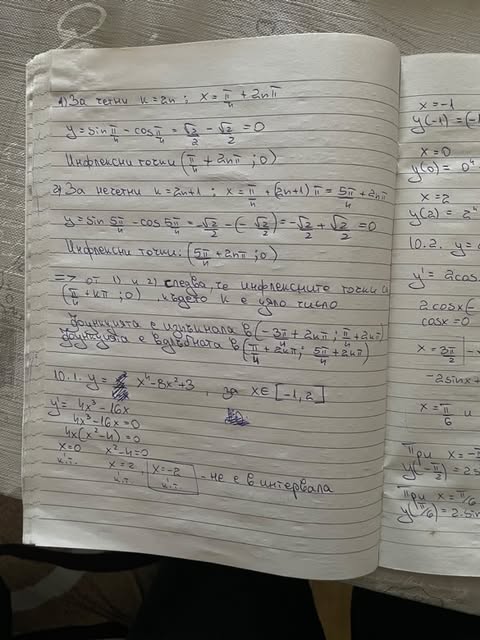 1) За четни k=2n; x=π/4+2nπ
y=sin π/4 - cos π/4 = √2/2 - √2/2 = 0
Инфлексни точки (π/4+2nπ; 0)
2) За нечетни k=2n+1; x=π/4+(2n+1)π=5π/4+2nπ
y=sin 5π/4 - cos 5π/4 = -√2/2 - (-√2/2) = -√2/2 + √2/2 = 0
Инфлексни точки: (5π/4+2nπ; 0)
=> от 1) и 2) следва, че инфлексните точки са
(π/4+kπ; 0), където k е цяло число
Функцията е изпъкнала в (-3π/4+2kπ; π/4+2kπ)
Функцията е вдлъбната в (π/4+2kπ; 5π/4+2kπ)
10.1. y= x⁴-8x²+3, за x∈[-1,2]
y'=4x³-16x
4x³-16x=0
4x(x²-4)=0
x=0 x²-4=0
к.т. x=2, x=-2 - не е в интервала
к.т. к.т.
x=-1
y(-1)=(-1
x=0
y(0)=0⁴
x=2
y(2)=2⁴
10.2. y=
y'=2cos
2cosx(
cosx=0
x=3π/2
-2sinx+
x=π/6 и
При x=-π/2
y(-π/2)=2s
При x=π/6
y(π/6)=2.sin